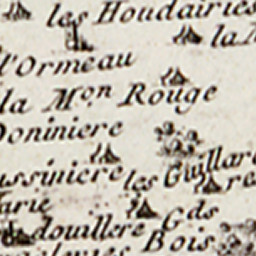 les Houdairies
la
l'Ormeau
la Mon Rouge
Doniniere
ussiniere les Guillar
arie
douillere Gds
Bois